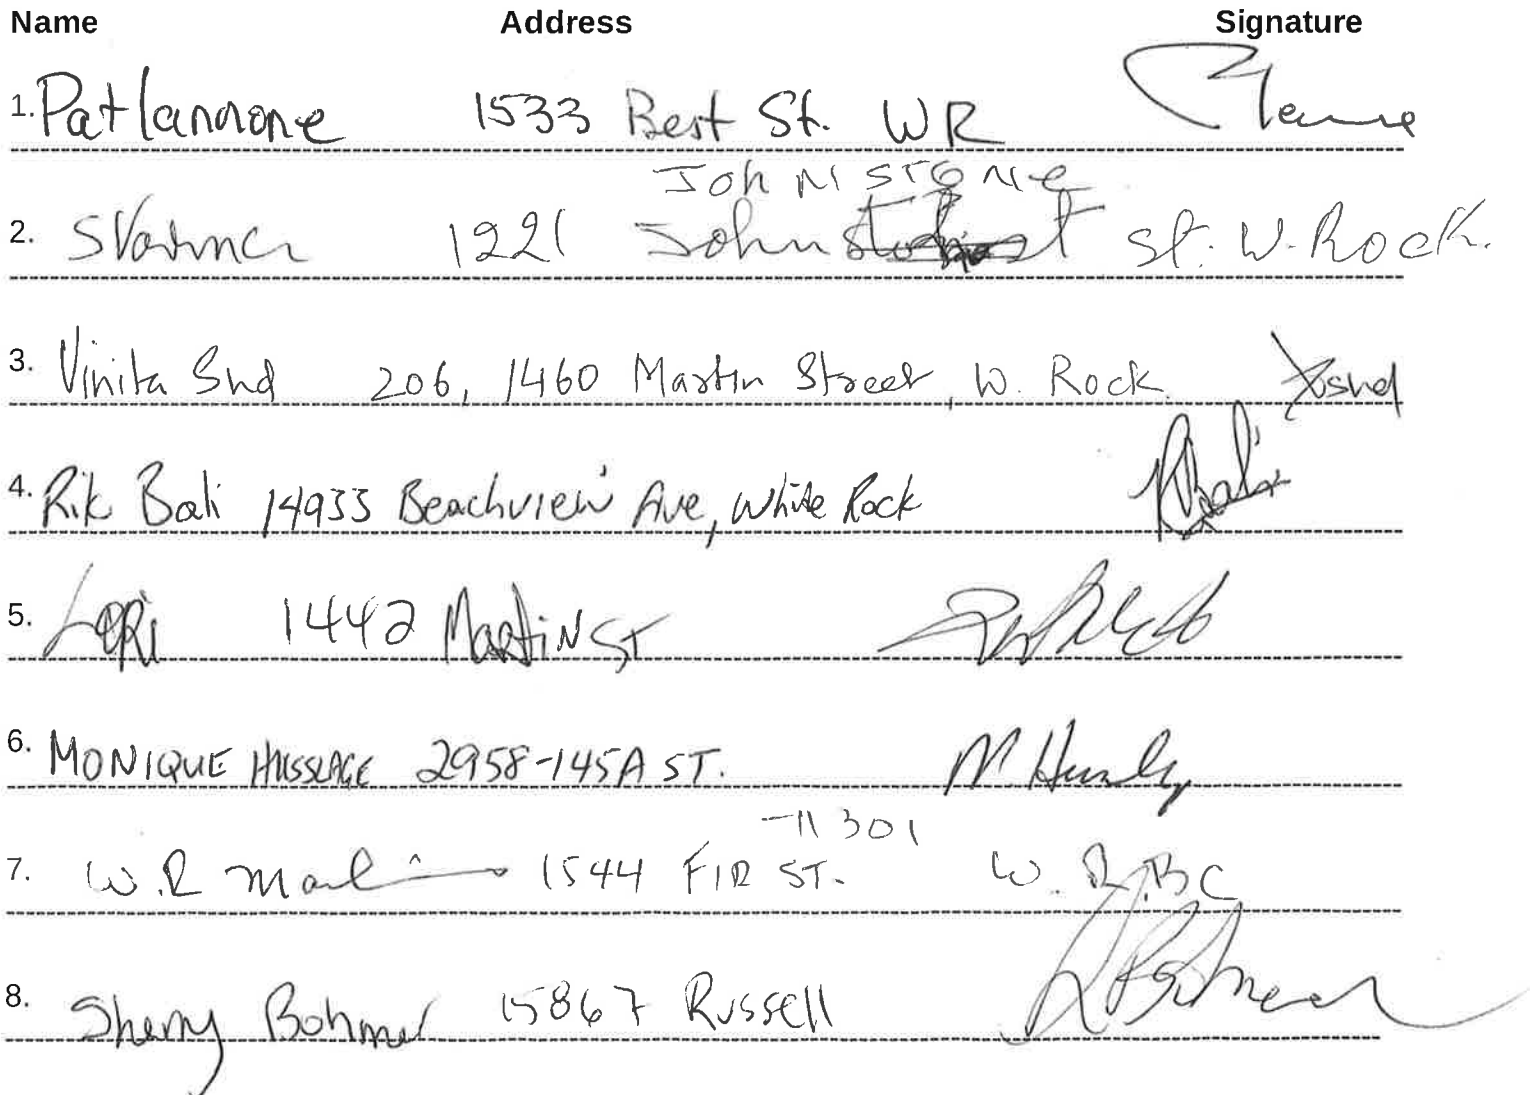 Name Address Signature
1. Pat Iannone 1533 Best St. WR
JohNSTONe
2. 1221 John St. W. Rock.
3. Vinita Sud 206, 1460 Martin Street, W. Rock.
4. Rik Bali 14933 Beachview Ave, White Rock
5. LORi 1442 MartiN ST
6. MONIQUE HUSSLAGE 2958-145A ST. M
-11 301
7. W.R 1544 FIR ST. W.R. BC
8. Sherry Bohmer 15867 Russell